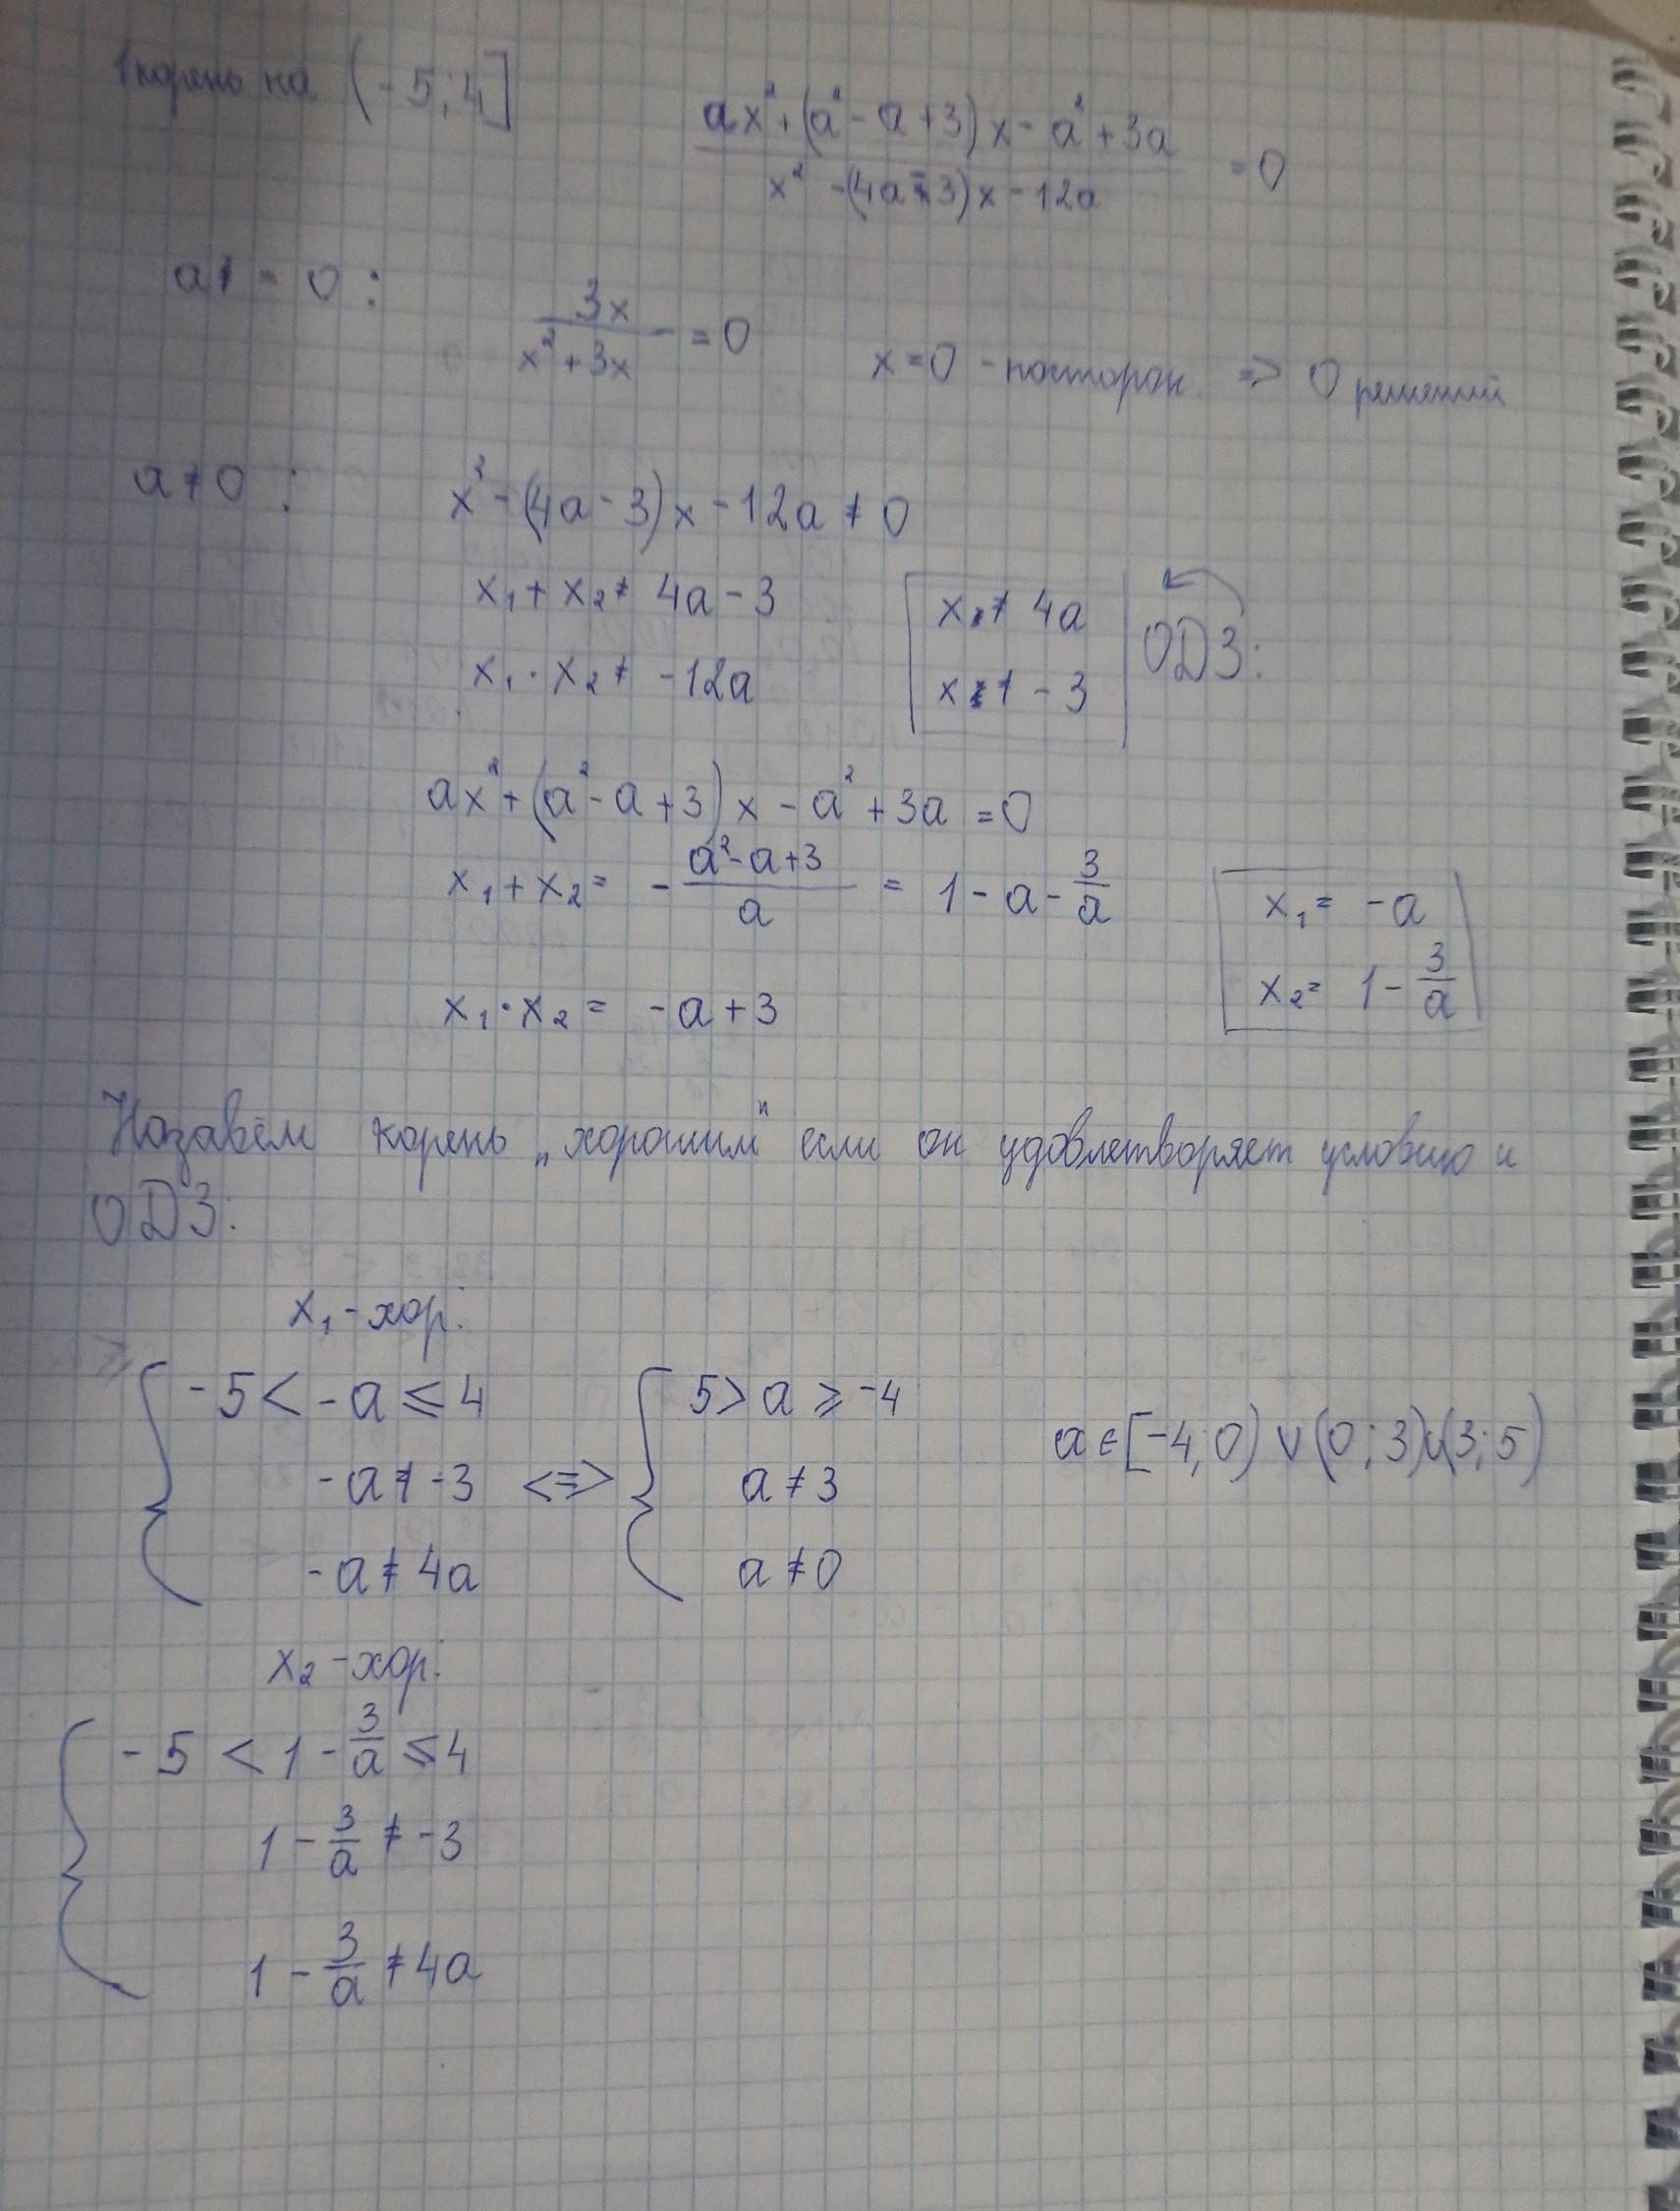 1 корень на (-5; 4]
(ax² + (a² - a + 3)x - a² + 3a) / (x² - (4a - 3)x - 12a) = 0
a = 0 :
3x / (x² + 3x) = 0
x = 0 - посторон. => 0 решений
a ≠ 0 :
x² - (4a - 3)x - 12a ≠ 0
x₁ + x₂ ≠ 4a - 3
x ≠ 4a
ОДЗ:
x₁ · x₂ ≠ -12a
x ≠ -3
ax² + (a² - a + 3)x - a² + 3a = 0
x₁ + x₂ = - (a² - a + 3)/a = 1 - a - 3/a
x₁ = -a
x₁ · x₂ = -a + 3
x₂ = 1 - 3/a
Назавём корень „хорошим" если он удовлетворяет условию и
ОДЗ:
x₁ - хор:
{ -5 < -a ≤ 4
-a ≠ -3
-a ≠ 4a
<=>
{ 5 > a ≥ -4
a ≠ 3
a ≠ 0
a ∈ [-4; 0) ∪ (0; 3) ∪ (3; 5)
x₂ - хор:
{ -5 < 1 - 3/a ≤ 4
1 - 3/a ≠ -3
1 - 3/a ≠ 4a